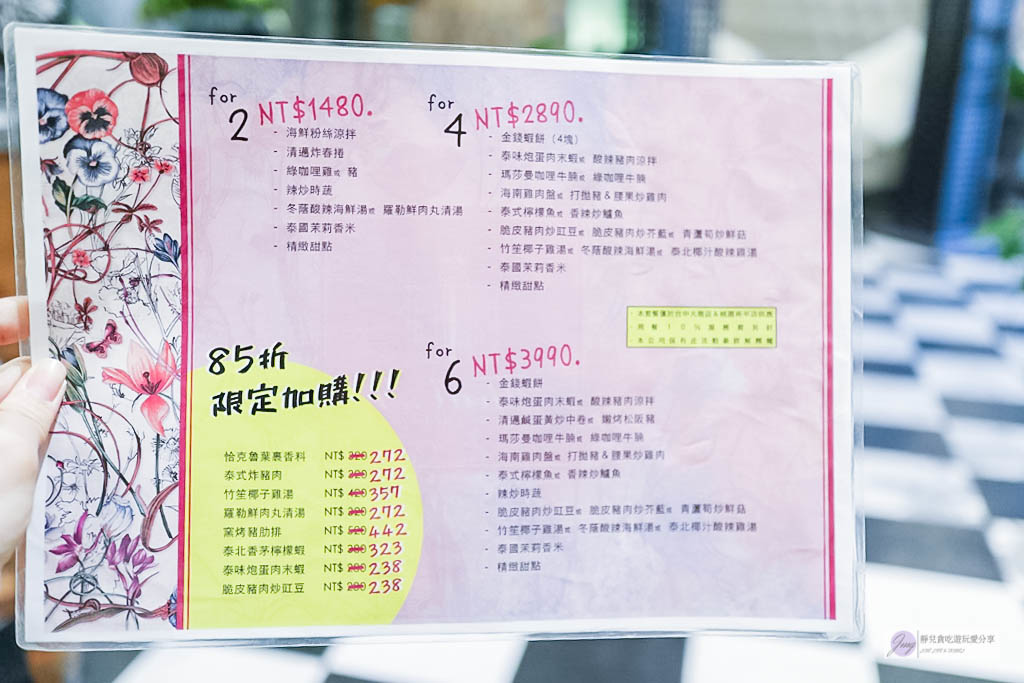 for 2 NT$1480.
- 海鮮粉絲涼拌
- 清邁炸春捲
- 綠咖哩雞或 豬
- 辣炒時蔬
- 冬蔭酸辣海鮮湯或 羅勒鮮肉丸清湯
- 泰國茉莉香米
- 精緻甜點
for 4 NT$2890.
- 金錢蝦餅（4塊）
- 泰味炮蛋肉末蝦或 酸辣豬肉涼拌
- 瑪莎曼咖哩牛腩或 綠咖哩牛腩
- 海南雞肉盤或 打拋豬＆腰果炒雞肉
- 泰式檸檬魚或 香辣炒鱸魚
- 脆皮豬肉炒豇豆或 脆皮豬肉炒芥藍或 青蘆筍炒鮮菇
- 竹笙椰子雞湯或 冬蔭酸辣海鮮湯或 泰北椰汁酸辣雞湯
- 泰國茉莉香米
- 精緻甜點
- 用餐10%服務費另計
85折
限定加購!!!
恰克魯葉裹香料 NT$ 320 272
泰式炸豬肉 NT$ 320 272
竹笙椰子雞湯 NT$ 420 357
羅勒鮮肉丸清湯 NT$ 320 272
窯烤豬肋排 NT$ 520 442
泰北香茅檸檬蝦 NT$ 380 323
泰味炮蛋肉末蝦 NT$ 280 238
脆皮豬肉炒豇豆 NT$ 280 238
for 6 NT$3990.
- 金錢蝦餅
- 泰味炮蛋肉末蝦或 酸辣豬肉涼拌
- 清邁鹹蛋黃炒中卷或 嫩烤松阪豬
- 瑪莎曼咖哩牛腩或 綠咖哩牛腩
- 海南雞肉盤或 打拋豬＆腰果炒雞肉
- 泰式檸檬魚或 香辣炒鱸魚
- 辣炒時蔬
- 脆皮豬肉炒豇豆或 脆皮豬肉炒芥藍或 青蘆筍炒鮮菇
- 竹笙椰子雞湯或 冬蔭酸辣海鮮湯或 泰北椰汁酸辣雞湯
- 泰國茉莉香米
- 精緻甜點
靜兒貪吃遊玩愛分享